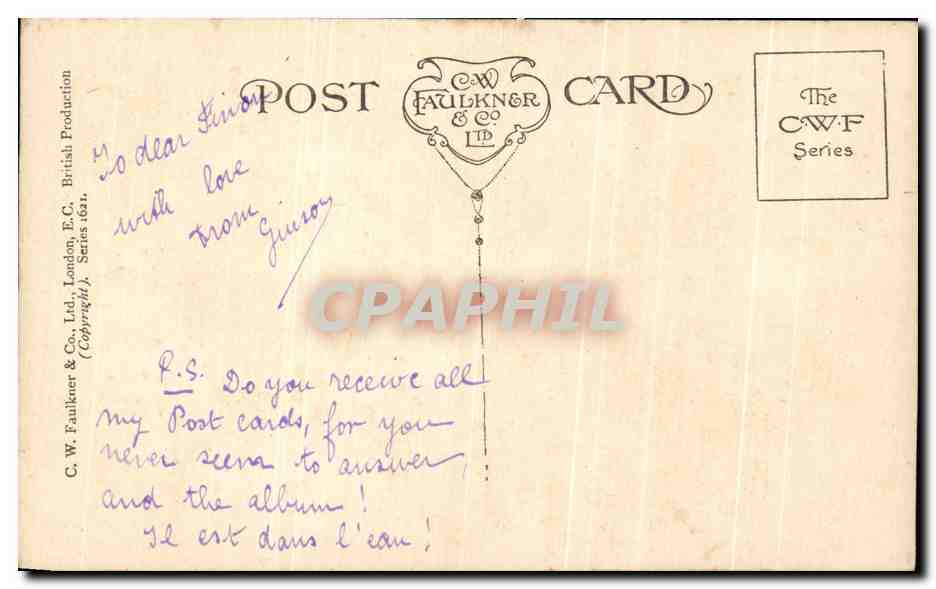 POST CARD
C.W
FAULKNER
& Co
LTD
The
C.W.F
Series
C. W. Faulkner & Co., Ltd., London, E.C. British Production
(Copyright). Series 1621.
To dear
with love
from
CPAPHIL
P.S. Do you receive all
my Post cards, for you
never seem to answer,
and the album!
Il est dans l'eau!